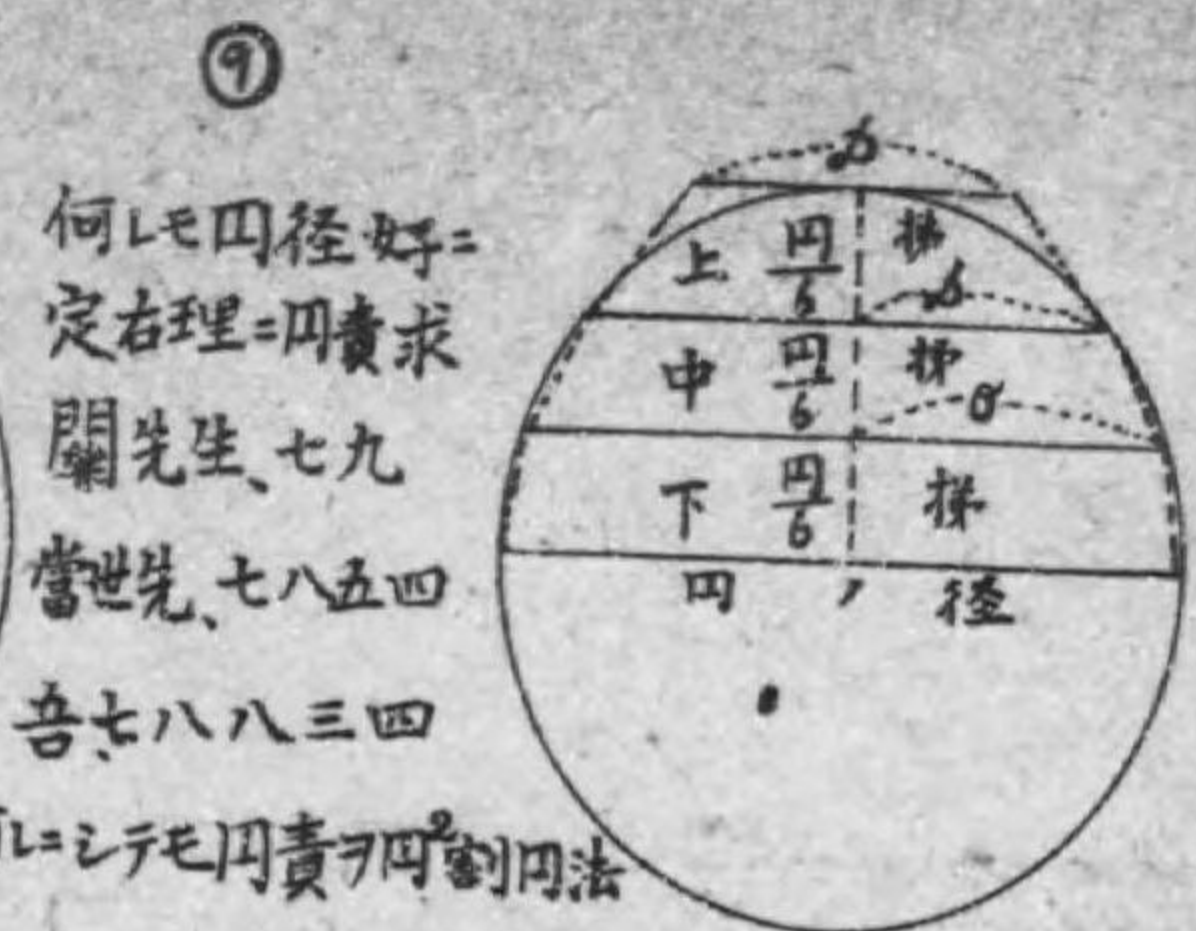 ⑨
何レモ円径好ニ
定右理ニ円責求
關先生、七九
當世先、七八五四
吾、七八八三四
レニシテモ円責ヲ円²割円法
上 円/6 梯
中 円/6 梯
下 円/6 梯
円ノ径